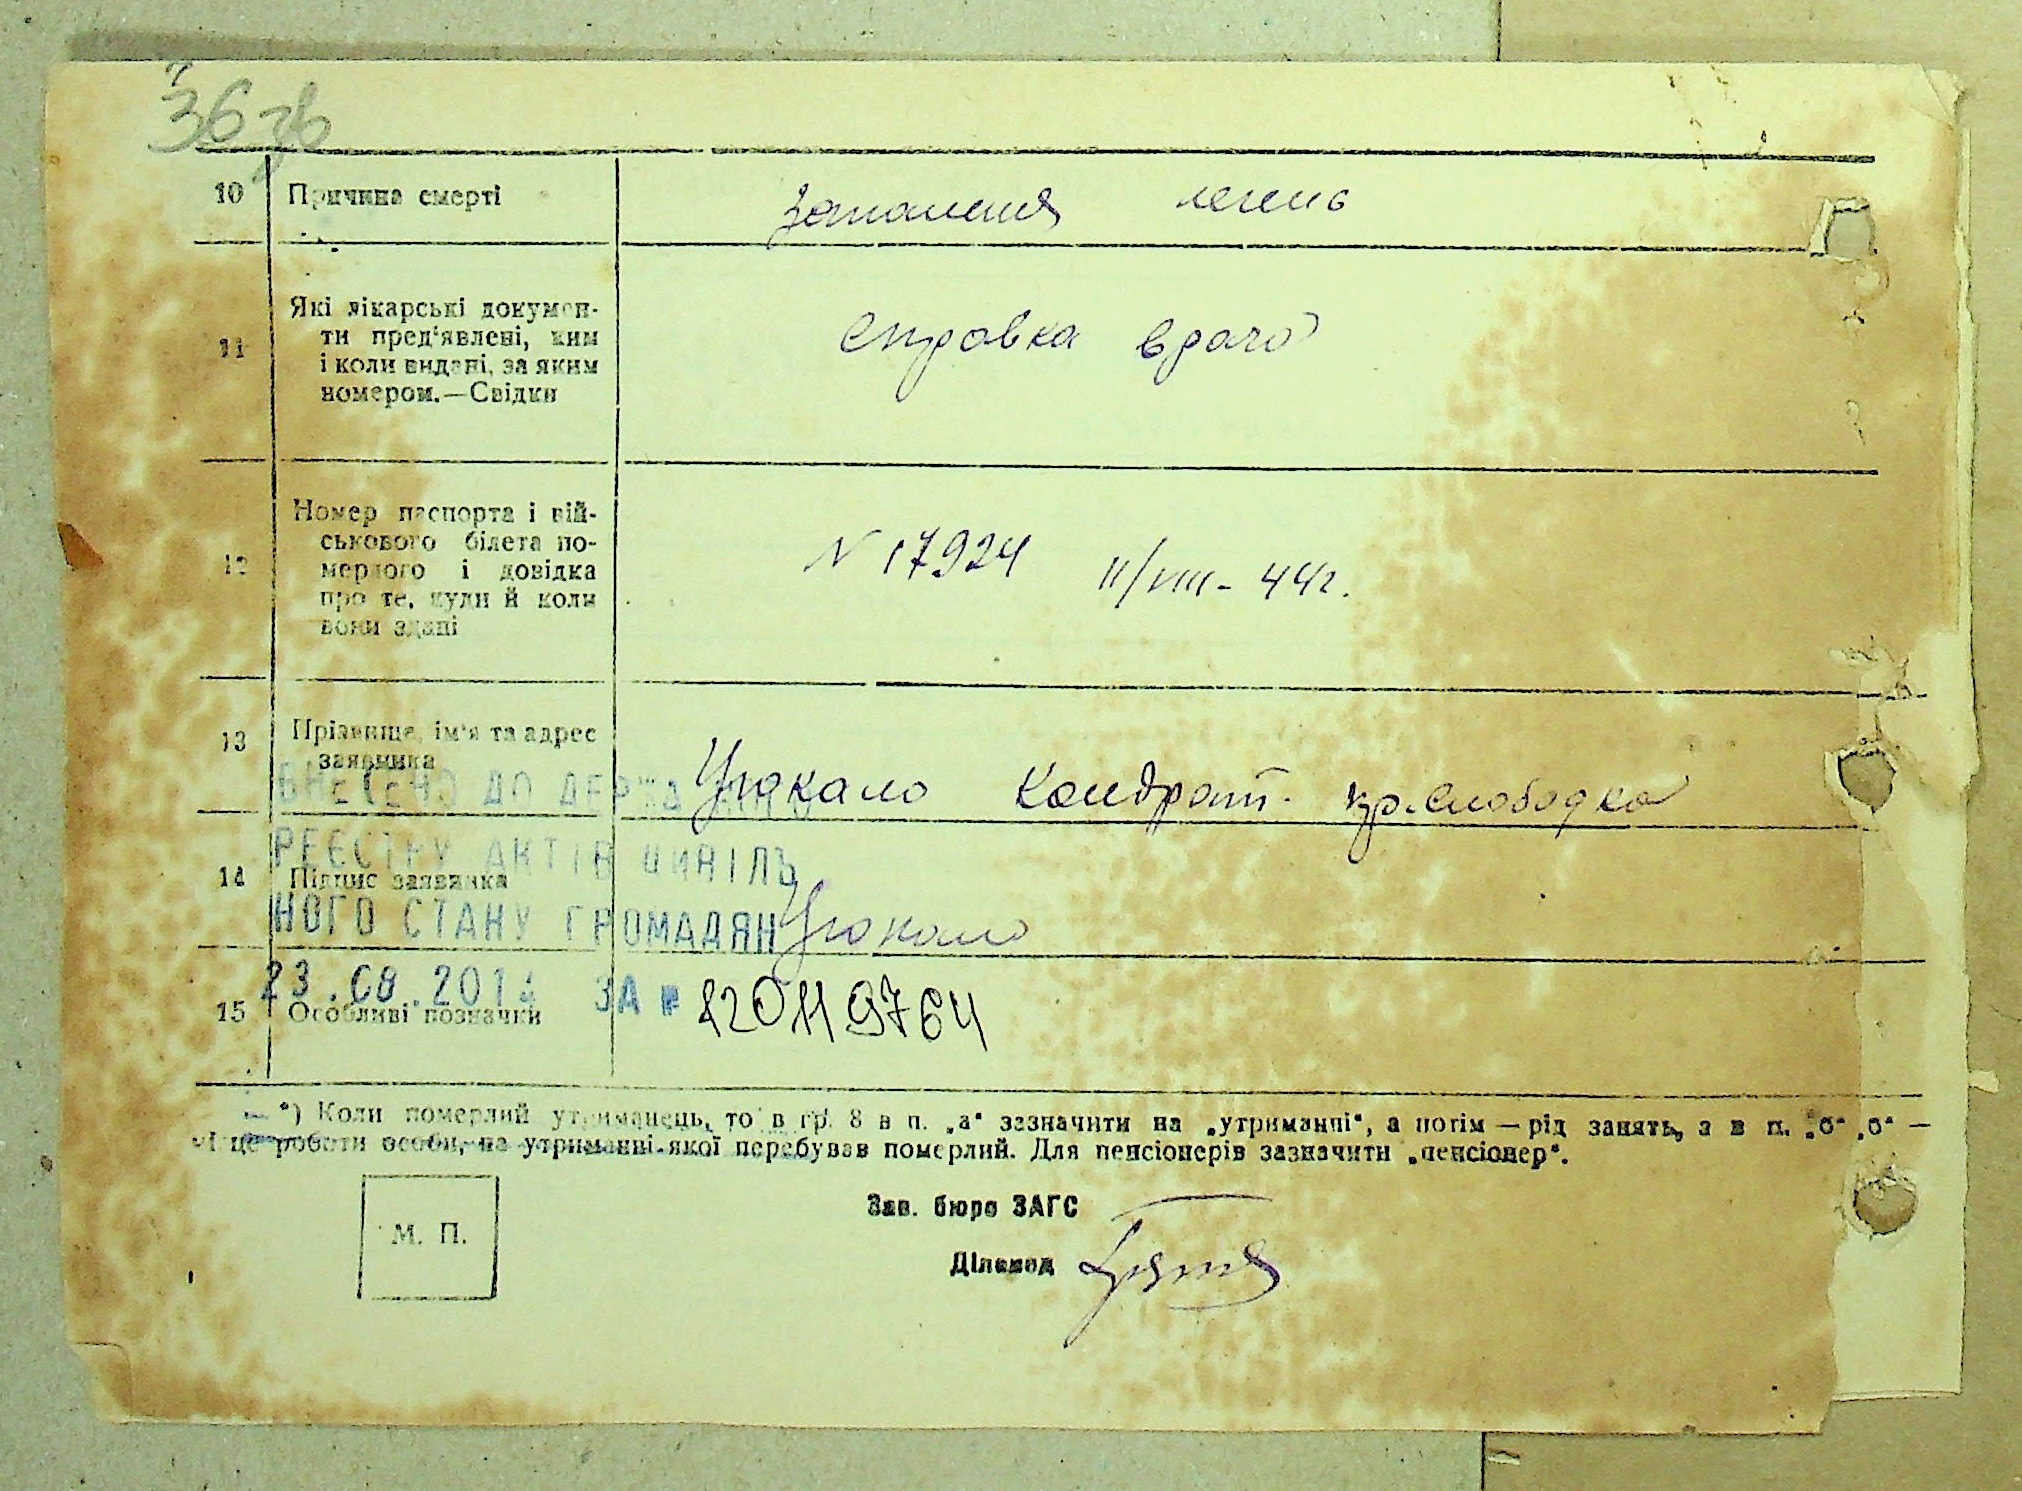 36 зв
10 Причина смерті запалення легень
11 Які лікарські докумен-
ти пред'явлені, ким
і коли видані, за яким
номером.—Свідки
справка врача
12 Номер паспорта і вій-
ськового білета по-
мерлого і довідка
про те, куди й коли
вони здані
N 17924 11/VIII - 44г.
13 Прізвище, ім'я та адрес
заявника
Цюкало Кондрат. кр.слободка
ВНЕСЕНО ДО ДЕРЖАВНОГО
РЕЄСТРУ АКТІВ ЦИВІЛЬ
14 Підпис заявника
НОГО СТАНУ ГРОМАДЯН
Цюкало
23.08.201 ЗА №
120119764
15 Особливі позначки
*) Коли померлий утриманець, то в гр. 8 в п. „а“ зазначити на „утриманні“, а потім — рід занять, а в п. „б“ „б“ —
місце роботи особи, на утриманні якої перебував померлий. Для пенсіонерів зазначити „пенсіонер“.
М. П.
Зав. бюро ЗАГС
Діловод